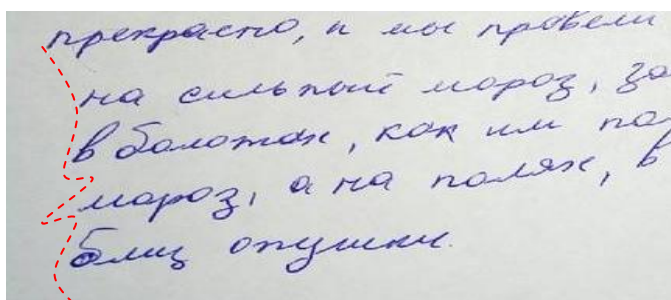 прекрасно, и мы провели
на сильный мороз, за
в болотах, как им по
мороз, а на полях, в
близ опушки.